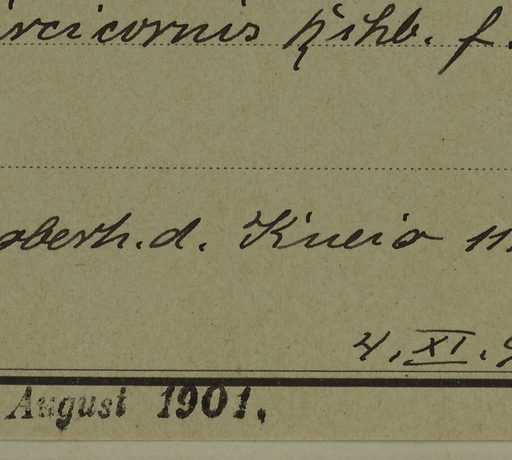 rcicornis Kihb. f.
oberh. d. Kneio 11
4. XI. 9
August 1901.